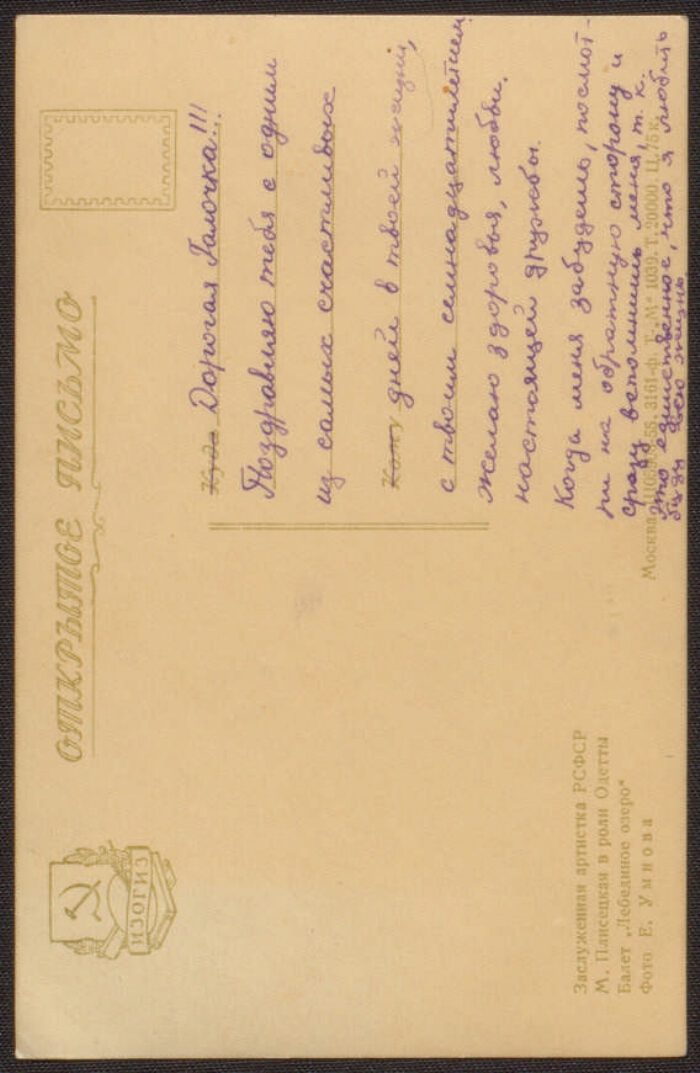 ОТКРЫТОЕ ПИСЬМО
ИЗОГИЗ
Куда Дорогая Галочка!!!
Поздравляю тебя с одним
из самых счастливых
Кому дней в твоей жизни,
с твоим семнадцатилетием
Желаю здоровья, любви,
настоящей дружбы.
Когда меня забудешь, посмот-
ри на обратную сторону и
сразу вспомнишь меня, т. к.
это единственное, что я любить
буду всю жизнь
Заслуженная артистка РСФСР
М. Плисецкая в роли Одетты
Балет „Лебединое озеро“
Фото Е. Умнова
Москва 3161-ф. Т. М° 1039. Т. 20000. Ц. 75 к.